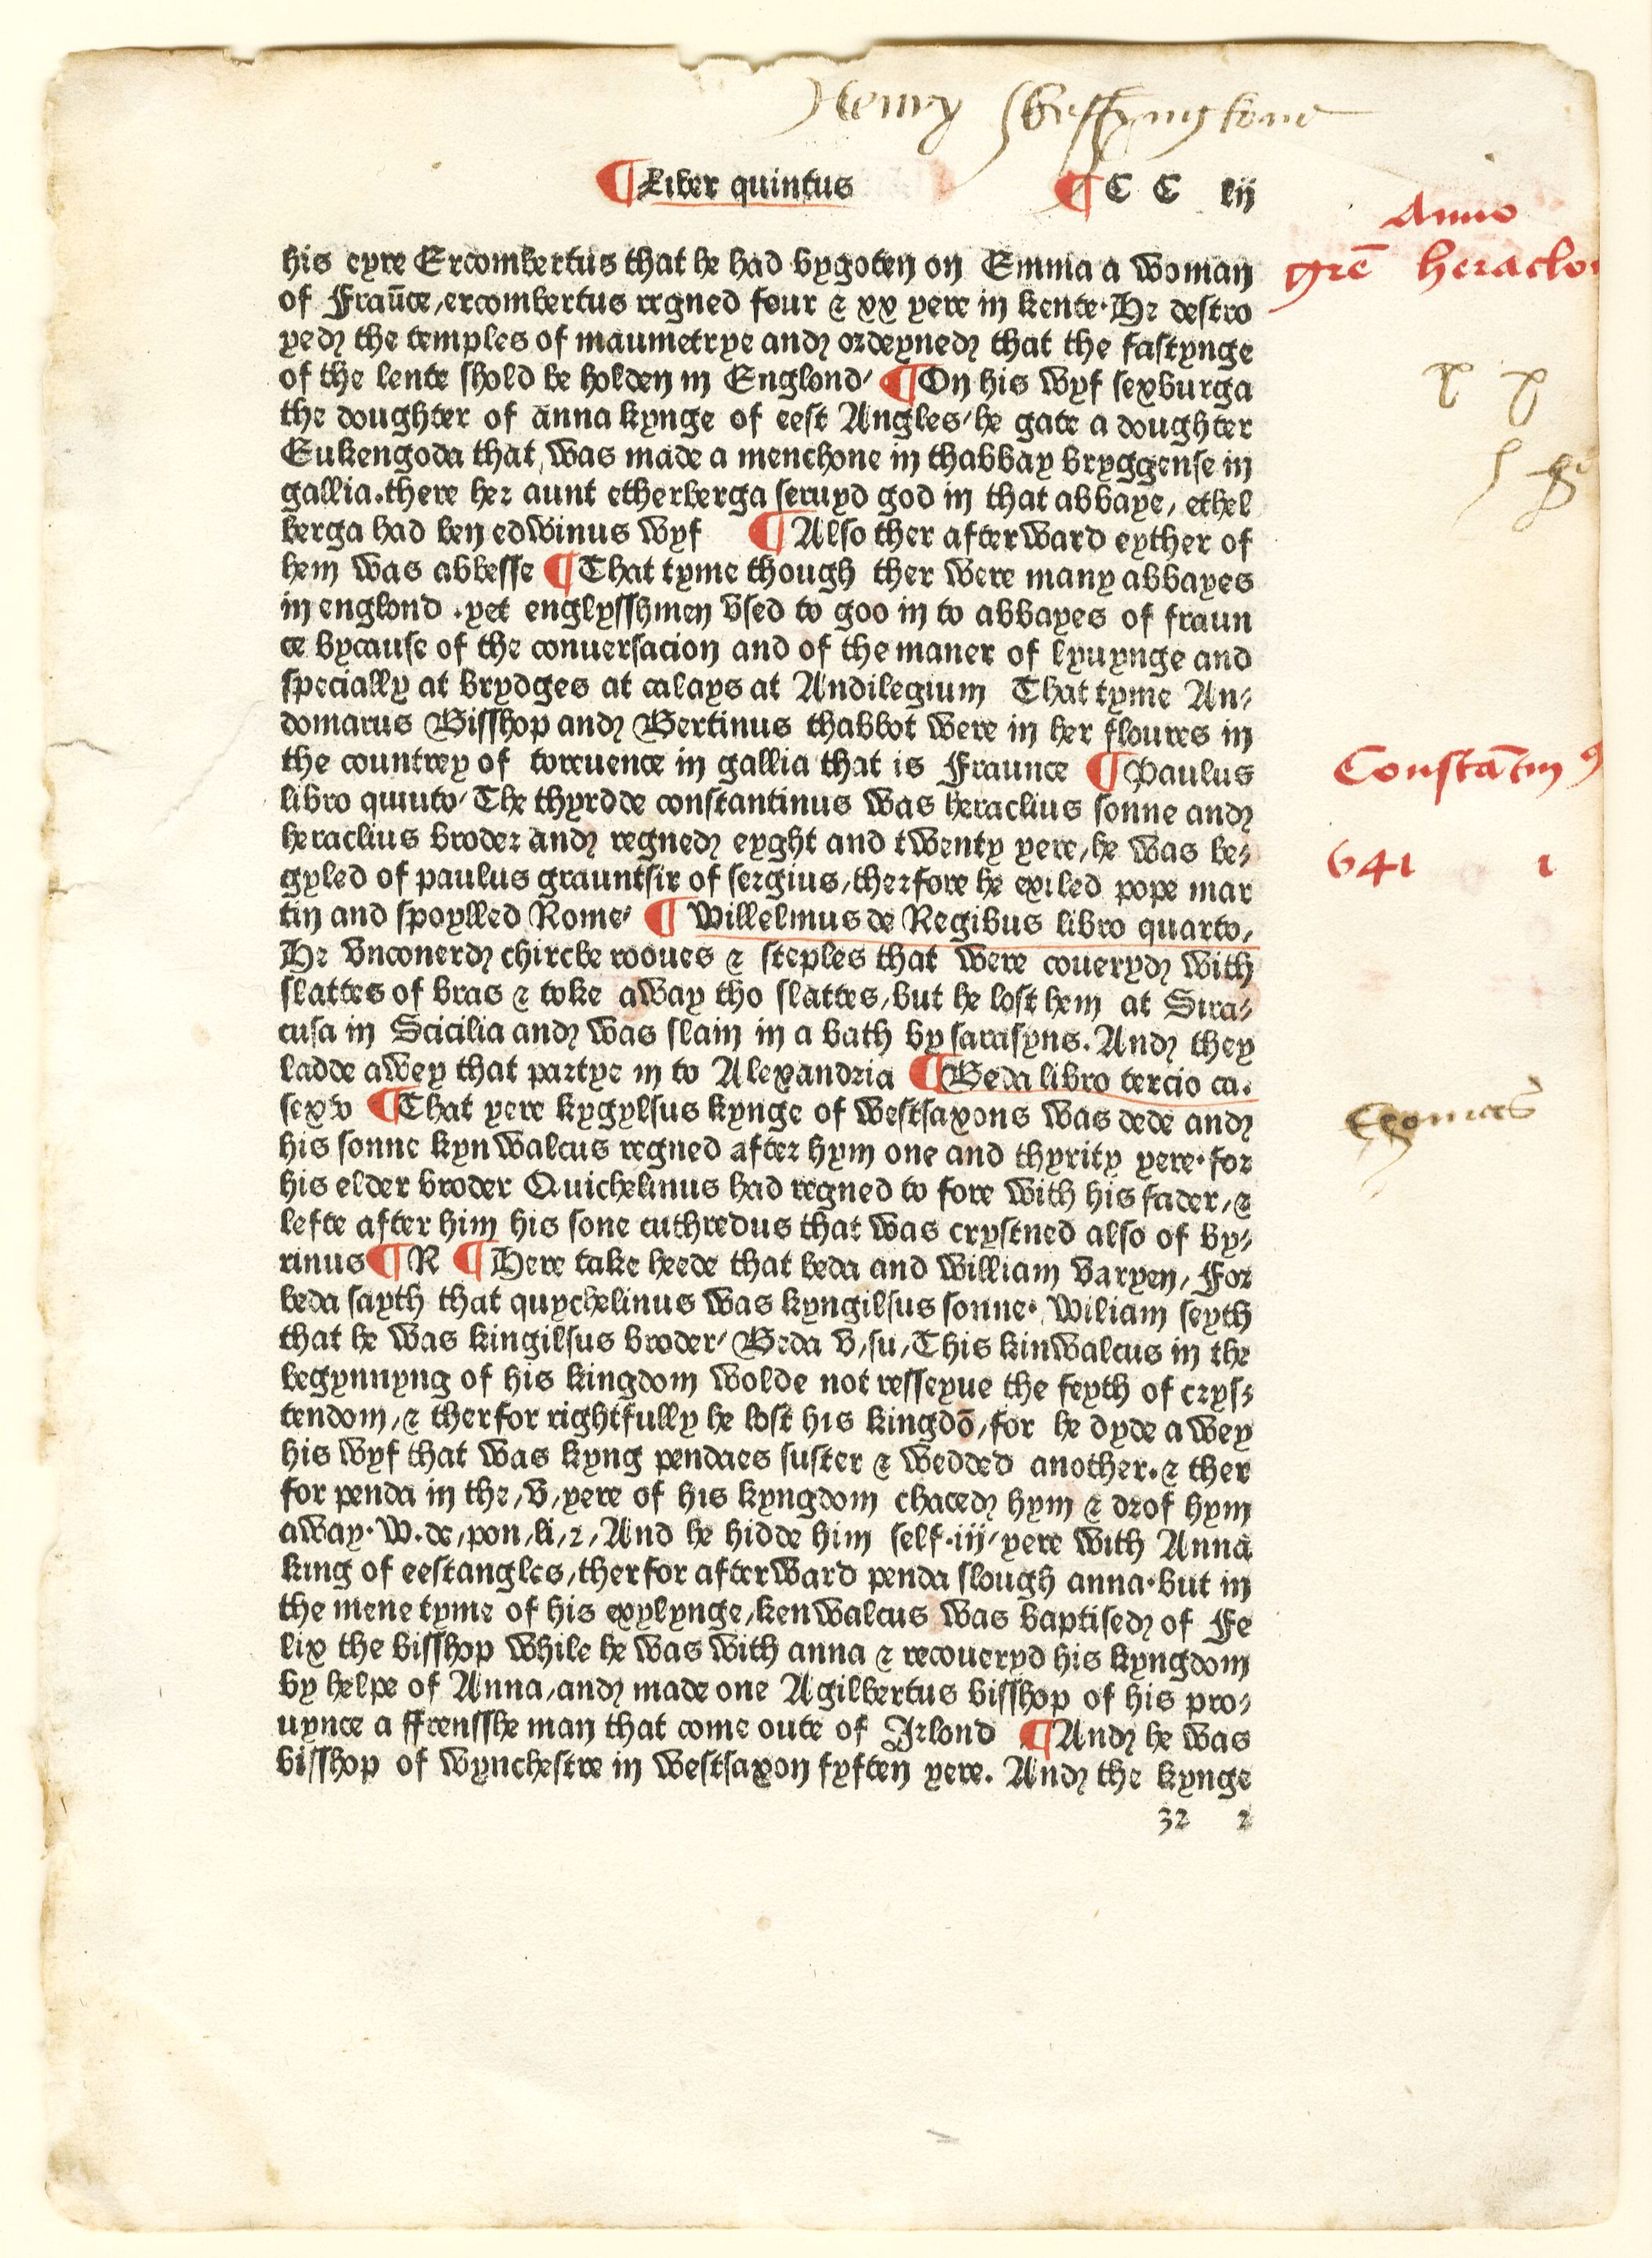 Henry
¶Liber quintus ¶C C lij
Anno
grē heraclo
his eyre Ercombertus that he had bygoten on Emma a woman
of Fraūce, ercombertus regned four & xx yere in kente. He destro
yed the temples of maumetrye and ordeyned that the fastynge
of the lente shold be holden in Englond/ ¶On his wyf sexburga
the doughter of anna kynge of eest Angles/he gate a doughter
Eukengoda that, was made a menchone in thabbay bryggense in
gallia. there her aunt etherberga seruyd god in that abbaye, ethel
berga had ben edwinus wyf ¶Also ther afterward eyther of
hem was abbesse ¶That tyme though ther were many abbayes
in englond .yet englysshmen vsed to goo in to abbayes of fraun
ce bycause of the conuersacion and of the maner of lyuynge and
specially at brydges at calays at Andilegium That tyme An/
domarus Bisshop and Bertinus thabbot were in her floures in
the countrey of toreuence in gallia that is Fraunce ¶Paulus
Constātin9
libro quiuto/ The thyrdde constantinus was heraclius sonne and
heraclius broder and regned eyght and twenty yere, he was be/
641 1
gyled of paulus grauntsir of sergius, therfore he exiled pope mar
tin and spoylled Rome/ ¶Willelmus de Regibus libro quarto,
He vnconerd chirche rooues & steples that were coueryd with
slattes of bras & toke away tho slattes, but he lost hem at Sira/
cusa in Scicilia and was slain in a bath by sarasyns. And they
ladde awey that partye in to Alexandria ¶Beda libro tercio ca.
sexto ¶That yere kygylsus kynge of westsaxons was dede and
his sonne kynwalcus regned after hym one and thyrity yere. for
his elder broder Quichelinus had regned to fore with his fader, &
lefte after him his sone cuthredus that was crystned also of by/
rinus ¶R ¶Here take heede that beda and william varyen, For
beda sayth that quychelinus was kyngilsus sonne. Wiliam seyth
that he was kingilsus broder/ Beda v, su, This kinwalcus in the
begynnyng of his kingdom wolde not resseyue the feyth of crys/
tendom, & therfor rightfully he lost his kingdō, for he dyde awey
his wyf that was kyng pendaes suster & wedded another. & ther
for penda in the, v, yere of his kyngdom chaced hym & drof hym
away. W. de, pon, li, 2, And he hidde him self. iij/ yere with Anna
king of eestangles, therfor afterward penda slough anna. but in
the mene tyme of his exylynge, kenwalcus was baptised of Fe
lix the bisshop while he was with anna & recoueryd his kyngdom
by helpe of Anna, and made one Agilbertus bisshop of his pro/
uynce a ffrensshe man that come oute of Irlond ¶And he was
bisshop of wynchestre in westsaxon fyften yere. And the kynge
32 2